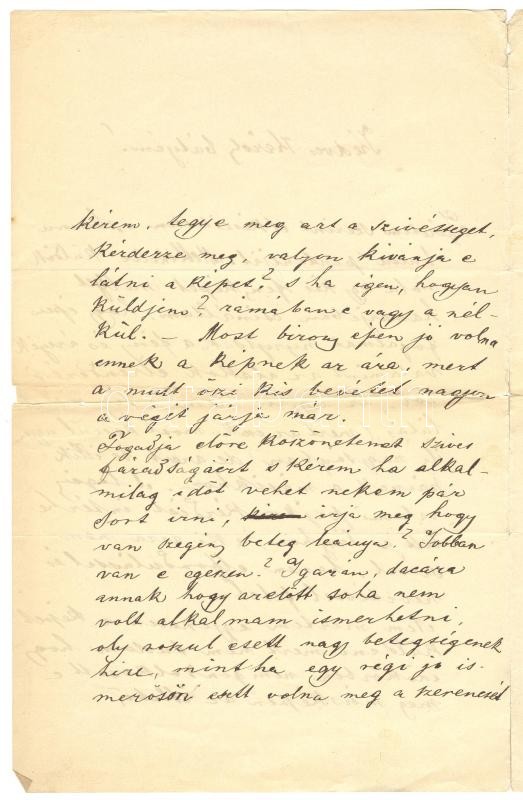 kérem, tegye meg azt a szivességet,
kérdezze meg, valjon kivánja e
látni a képet? s ha igen, hogyan
küldjem? rámában e vagy a nél-
kül. – Most bizony épen jó volna
ennek a képnek az ára, mert
a mult őszi kis bevétel nagyon
a végét járja már.
Fogadja előre köszönetemet szives
fáradságáért s kérem ha alkal-
milag időt vehet nekem pár
sort irni, irja meg hogy
van szegény beteg leánya? Jobban
van e egészen? Igazán, dacára
annak hogy azelőtt soha nem
volt alkalmam ismerhetni,
oly rosszul esett nagy betegségének
hire, mintha egy régi jó is-
merősön esett volna meg a szerencsét